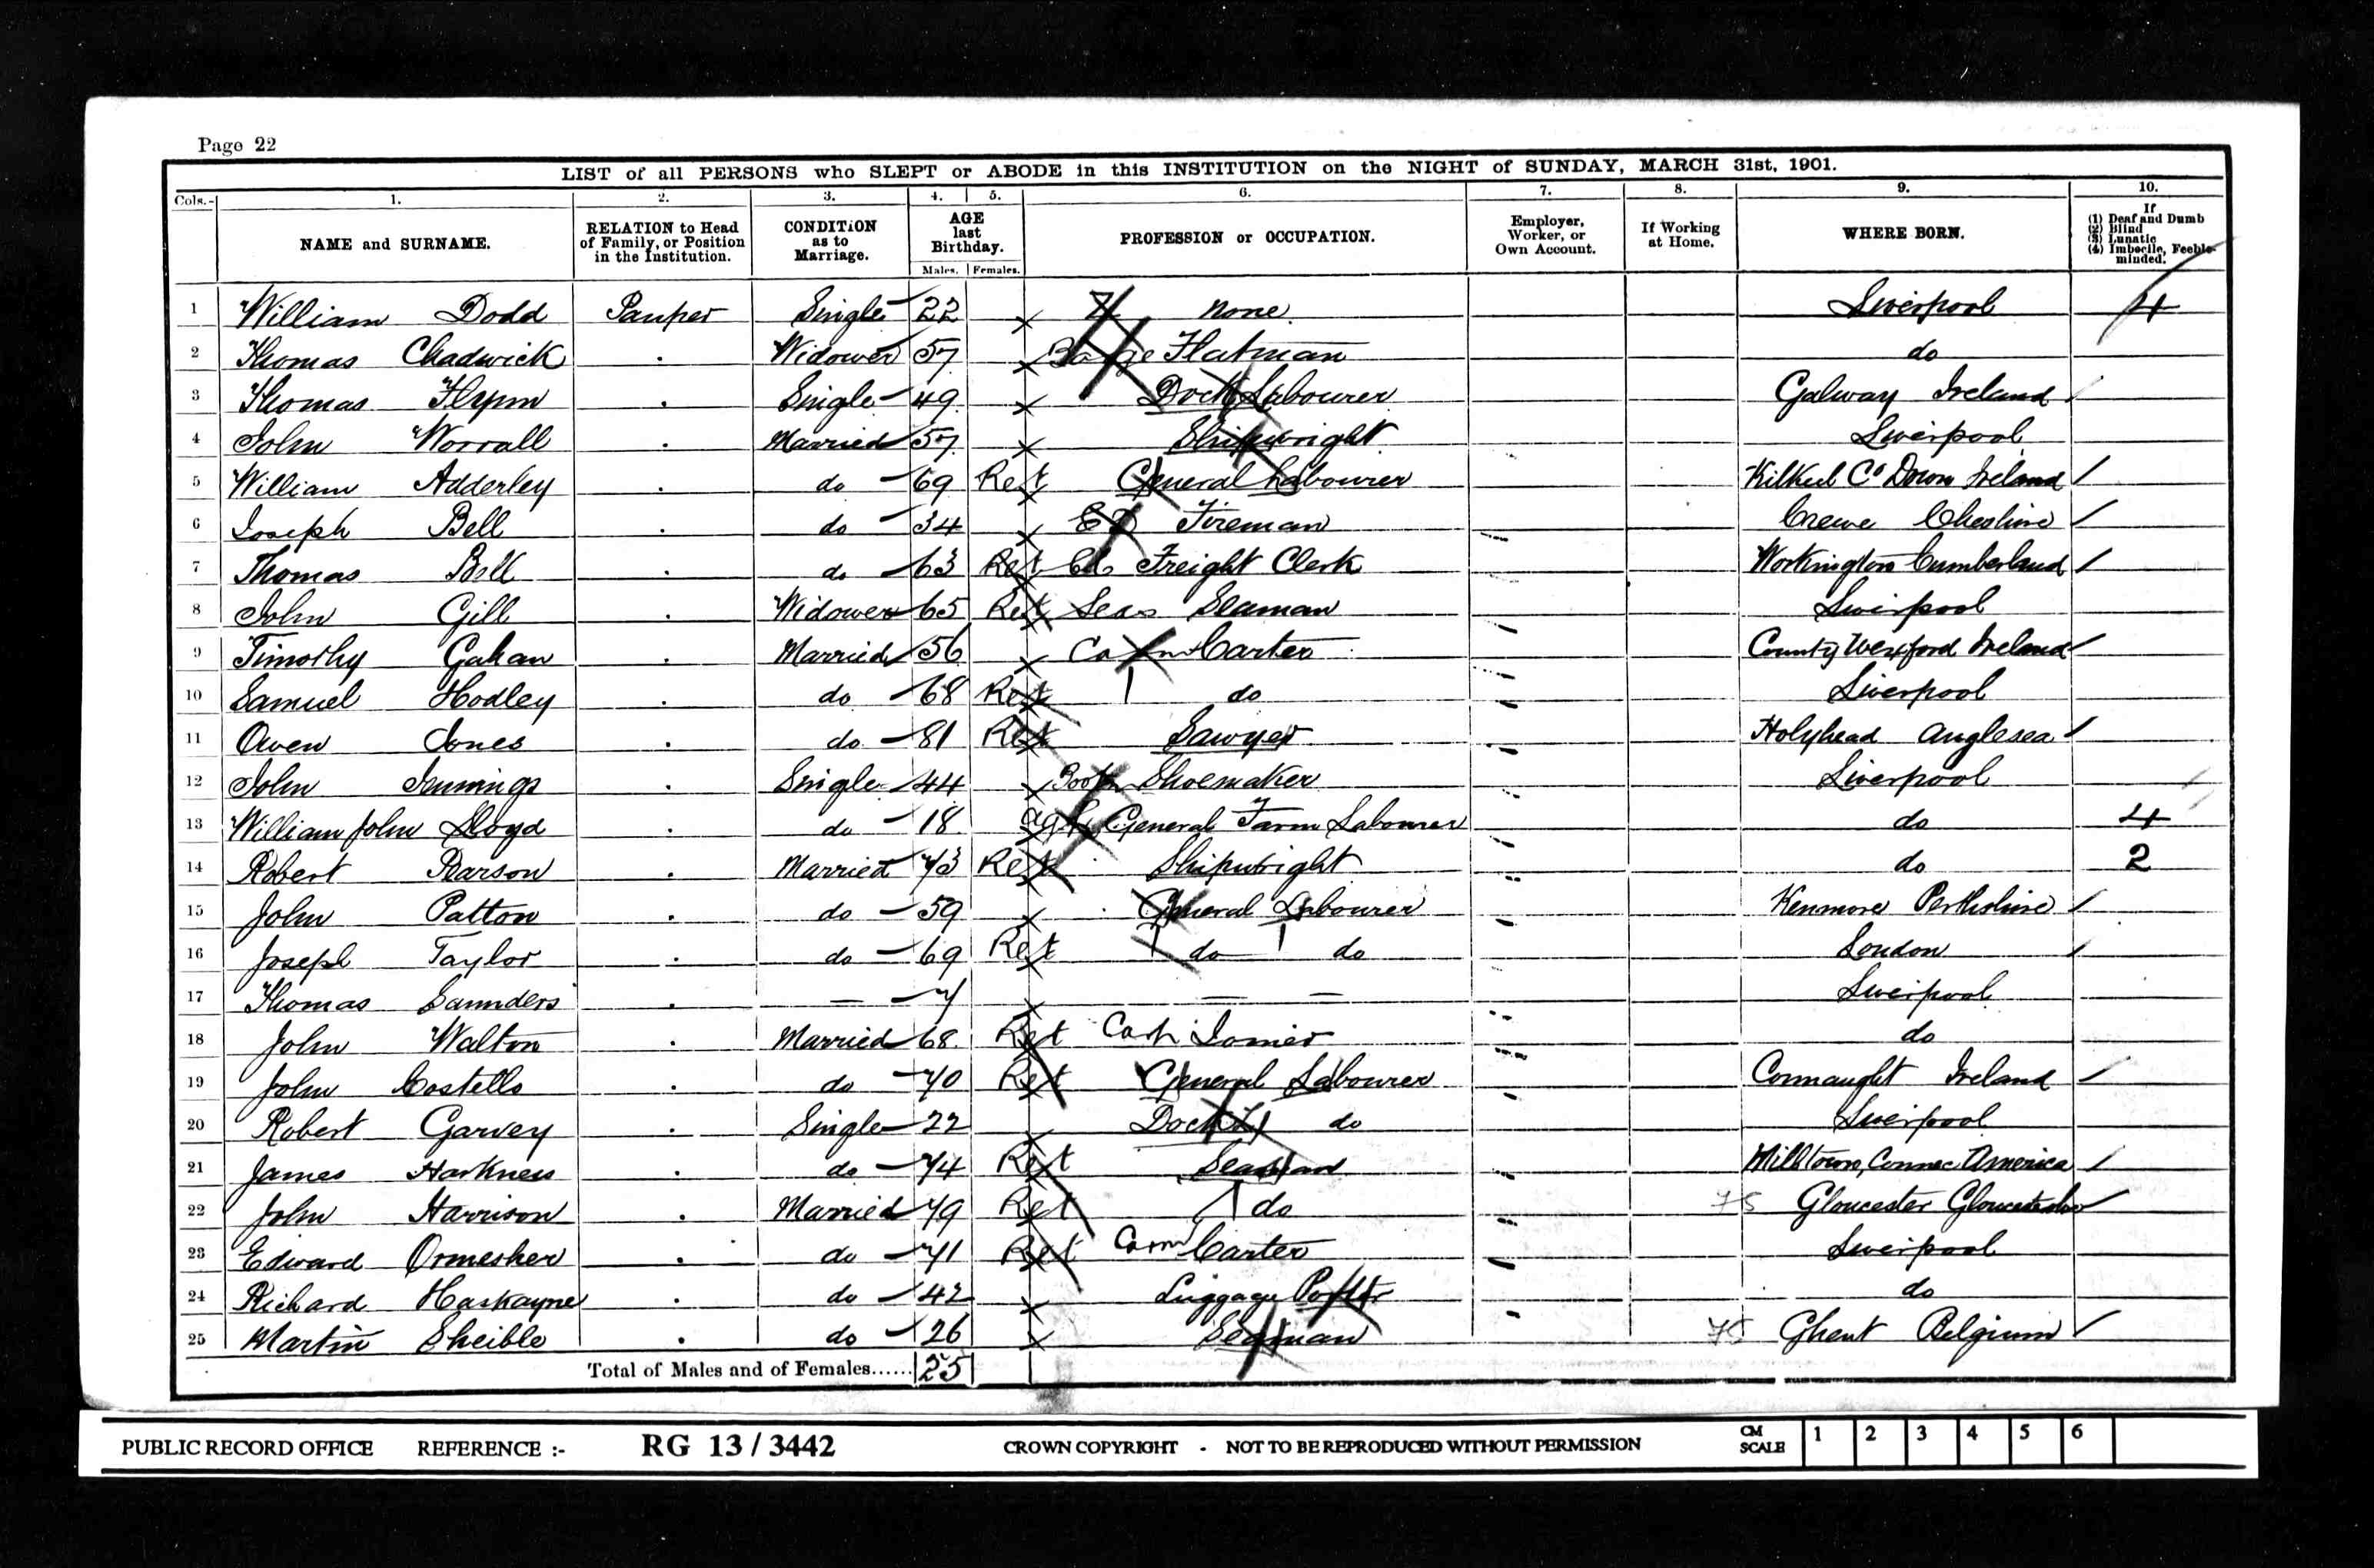 Page 22
LIST of all PERSONS who SLEPT or ABODE in this INSTITUTION on the NIGHT of SUNDAY, MARCH 31st, 1901.
Cols.- 1. 2. 3. 4. 5. 6. 7. 8. 9. 10.
NAME and SURNAME. RELATION to Head of Family, or Position in the Institution. CONDITION as to Marriage. AGE last Birthday. Males. Females. PROFESSION or OCCUPATION. Employer, Worker, or Own Account. If Working at Home. WHERE BORN. If (1) Deaf and Dumb (2) Blind (3) Lunatic (4) Imbecile, Feeble-minded.
1 William Dodd Pauper Single 22 none Liverpool 4
2 Thomas Chadwick . Widower 57 Barge Flatman do
3 Thomas Flynn . Single 49 Dock Labourer Galway Ireland
4 John Worrall . Married 57 Shipwright Liverpool
5 William Adderley . do 69 Ret General Labourer Kilkeel Co Down Ireland
6 Joseph Bell . do 34 Fireman Crewe Cheshire
7 Thomas Bell . do 63 Ret Freight Clerk Workington Cumberland
8 John Gill . Widower 65 Ret Seas Seaman Liverpool
9 Timothy Gahan . Married 56 Carter County Wexford Ireland
10 Samuel Hodley . do 68 Ret do Liverpool
11 Owen Jones . do 81 Ret Sawyer Holyhead Anglesea
12 John Jennings . Single 44 Shoemaker Liverpool
13 William John Lloyd . do 18 General Farm Labourer do 4
14 Robert Pearson . Married 73 Ret Shipwright do 2
15 John Patton . do 59 General Labourer Kenmore Perthshire
16 Joseph Taylor . do 69 Ret do do London
17 Thomas Saunders . — 7 — — Liverpool
18 John Walton . Married 68 Ret Joiner do
19 John Costello . do 70 Ret General Labourer Connaught Ireland
20 Robert Garvey . Single 22 Dock L do Liverpool
21 James Harkness . do 74 Ret Seaman Milltown, Connec. America
22 John Harrison . Married 79 Ret do 75 Gloucester Gloucestershire
23 Edward Ormesher . do 71 Ret Carm Carter Liverpool
24 Richard Haskayne . do 42 Luggage Porter do
25 Martin Sheible . do 26 Seaman 75 Ghent Belgium
Total of Males and of Females...... 25
PUBLIC RECORD OFFICE REFERENCE :- RG 13 / 3442 CROWN COPYRIGHT - NOT TO BE REPRODUCED WITHOUT PERMISSION CM SCALE 1 2 3 4 5 6